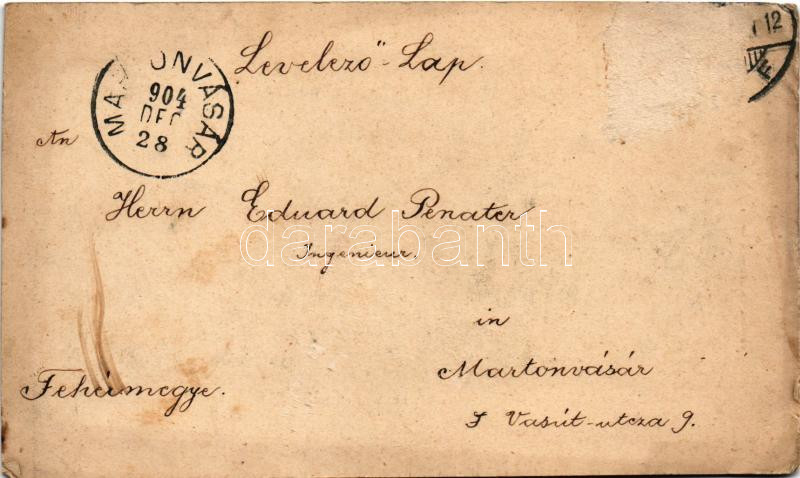 Levelező-Lap.
MARTONVÁSÁR
904
DEC
28
12
An
Herrn Eduard Penater
Ingenieur.
darabanth
in
Martonvásár
Vasút-utcza 9.
Fehérmegye.